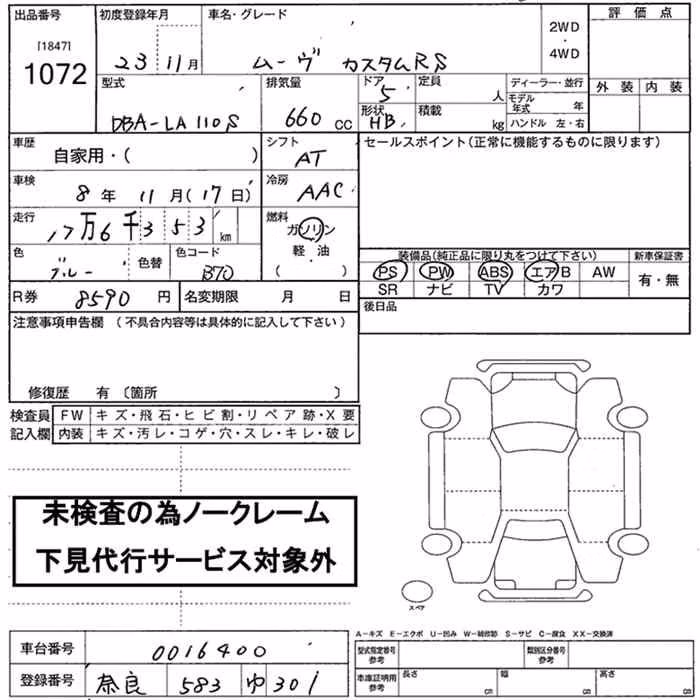 出品番号 初度登録年月 車名・グレード 2WD・4WD 評価点
[1847] 1072 23 11月 ムーヴ カスタムRS
型式 排気量 ドア 5 定員 人 ディーラー・並行 外装 内装
DBA-LA110S 660 cc 形状 HB 積載 kg モデル年式 年
ハンドル 左・右
車歴 自家用・( ) シフト AT セールスポイント(正常に機能するものに限ります)
車検 8年 11月(17日) 冷房 AAC
走行 17万6千353 km 燃料 ガソリン
軽・油
( )
色 ブルー 色替 色コード B70 装備品(純正品に限り丸をつけて下さい) 新車保証書
PS PW ABS エアB AW 有・無
SR ナビ TV カワ
R券 8590 円 名変期限 月 日 後日品
注意事項申告欄 (不具合内容等は具体的に記入して下さい)
修復歴 有 〔箇所 〕
検査員 FW キズ・飛石・ヒビ割・リペア跡・X要
記入欄 内装 キズ・汚レ・コゲ・穴・スレ・キレ・破レ
未検査の為ノークレーム
下見代行サービス対象外
スペア
A-キズ E-エクボ U-凹み W-補修跡 S-サビ C-腐食 XX-交換済
車台番号 0016400 型式指定番号 参考 類別区分番号 参考
登録番号 奈良 583 ゆ 301 車庫証明用 参考 長さ cm 幅 cm 高さ cm